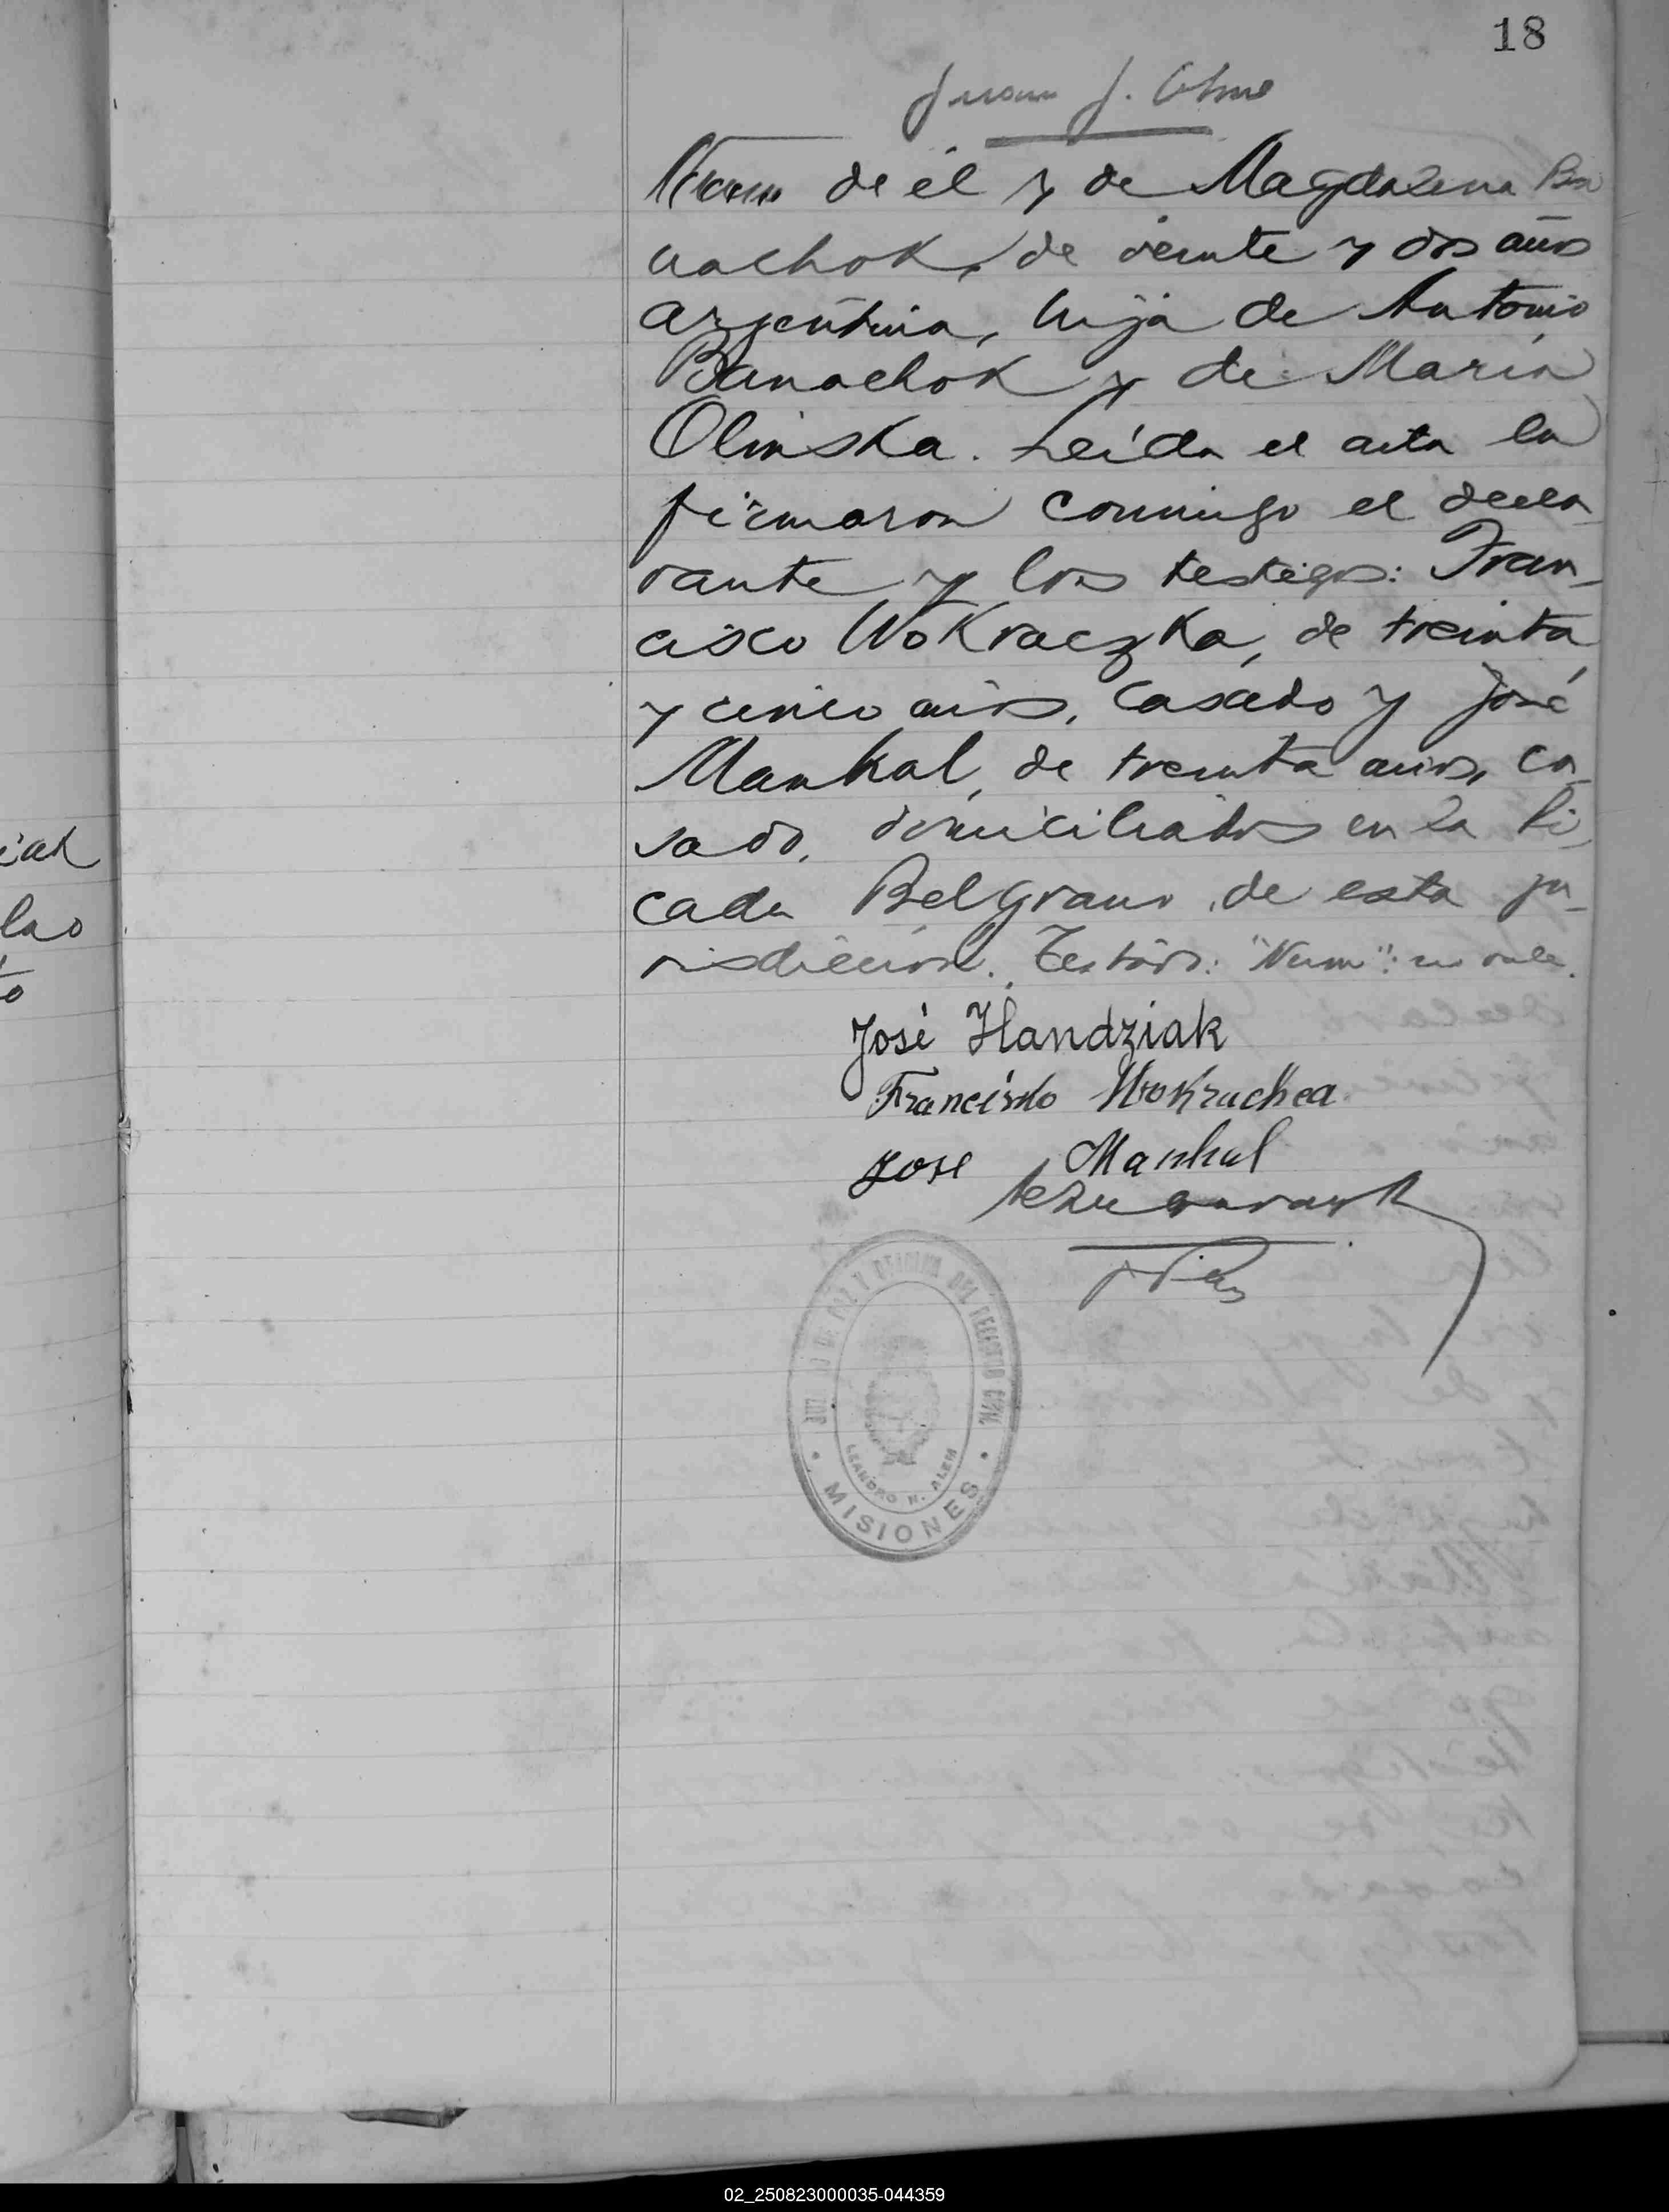 18
Juan J.
de él y de Magdalena Ba
nachok, de veinte y dos años
argentina, hija de Antonio
Banachok y de María
Olinska. Leída el acta la
firmaron conmigo el decla-
rante y los testigos: Fran-
cisco Wokraczka, de treinta
y cinco años, casado y José
Mankal, de treinta años, ca-
sado, domiciliados en la Pi-
cada Belgrano, de esta ju-
risdicción. Testado: "Num": no vale.
José Handziak
Francisko Wokruchca
Jose Manhul
JUZGADO DE PAZ Y OFICINA DEL REGISTRO CIVIL
LEANDRO N. ALEM
• MISIONES •
iak
lao
to
02_250823000035-044359